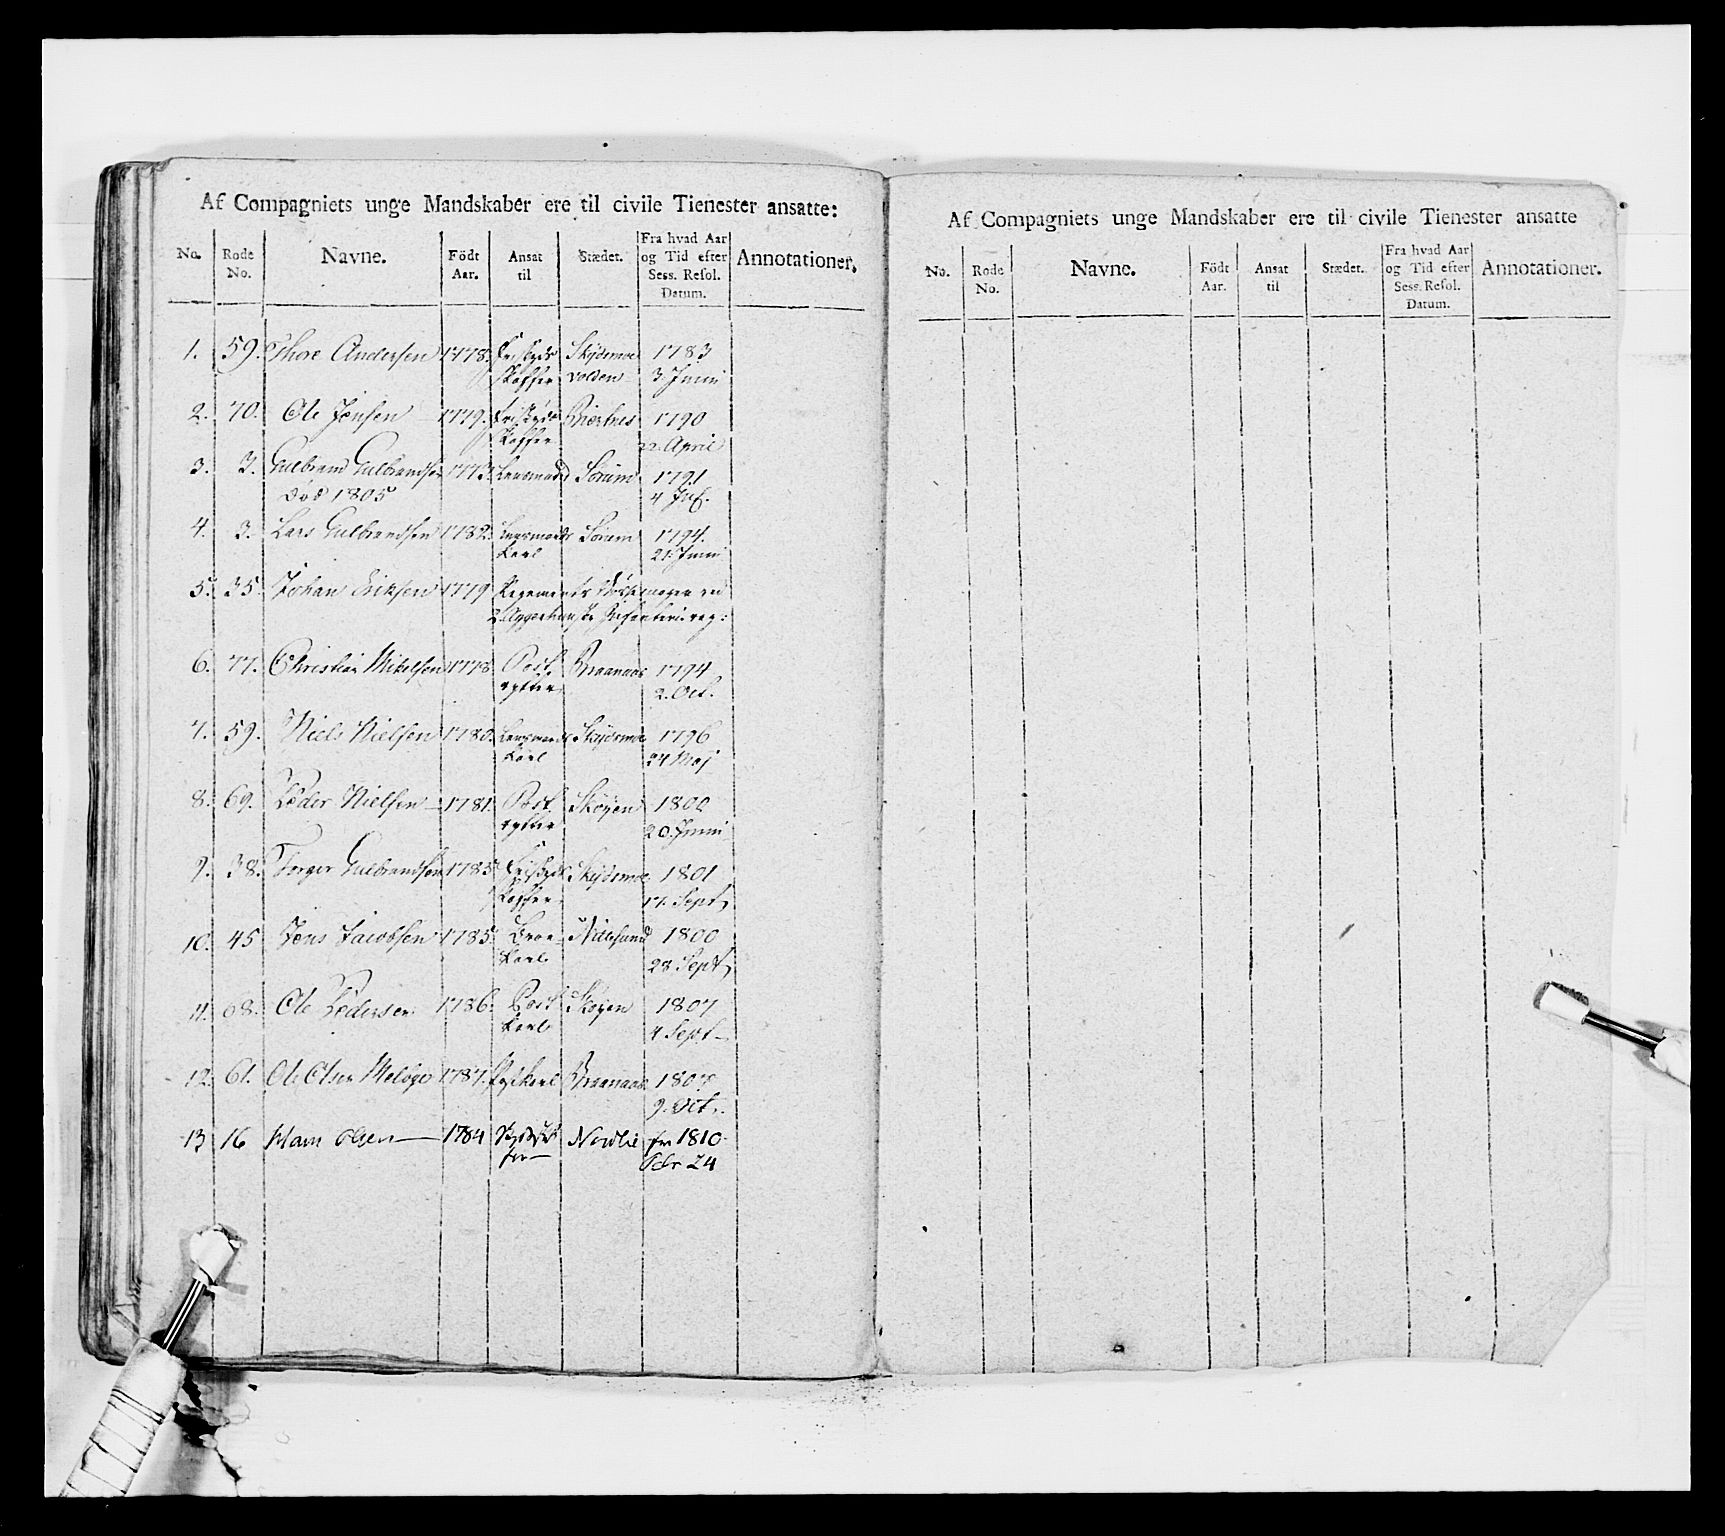 Af Compagniets unge Mandskaber ere til civile Tienester ansatte:
No. Rode No. Navne. Födt Aar. Ansat til Stædet. Fra hvad Aar og Tid efter Sess. Resol. Datum. Annotationer.
1. 59. Thore Andersen 1778. Skydsmoe 1783
skaffer volden 3. Junii
2. 70. Ole Jensen 1779. Biertnes 1790
skaffer 22. April
3. 3. Gulbrand Gulbrandsen 1773. Lensmand Sørum 1791
død 1805 4 Jul.
4. 3. Lars Gulbrandsen 1782. Lensmands Sørum 1794.
karl 21. Junii
5. 35. Johan Eriksen 1779 Regements ved
2. Aggerhuuske Infanteri reg:
6. 77. Christian Mikelsen 1778 Post Braanaas 1794
rytter 2. Oct.
7. 59. Niels Nielsen 1780. Lensmands Skydsmoe 1796
karl 24 Maj
8. 69. Peder Nielsen 1781. Post Skøyen 1800
rytter 20. Junii
9. 38. Torger Gulbrandsen 1785 Skydsmoe 1801
skaffer 17. Sept,
10. 45 Jens Jacobsen 1785. Broe 1800
karl 28 Sept,
11. 68. Ole Pedersen 1786. Post Skøyen 1807
karl 4 Sept
12. 61. Ole Olsen 1787. Postkarl Braanaas 1807
9. Oct.
13 16 Olsen 1784 Nordlie 1810
24
Af Compagniets unge Mandskaber ere til civile Tienester ansatte
No. Rode No. Navne. Födt Aar. Ansat til Stædet. Fra hvad Aar og Tid efter Sess. Resol. Datum. Annotationer.